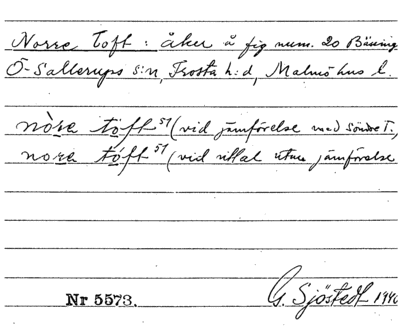 Norre Toft : åker å fig num. 20 Bäning
Ö-Sallerups s:n, Frosta h:d, Malmöhus l.
nòra tòft 51 (vid jämförelse med söndre T.,
nora tóft 51 (vid uttal utan jämförelse
Nr 5573.
G. Sjöstedt 1940